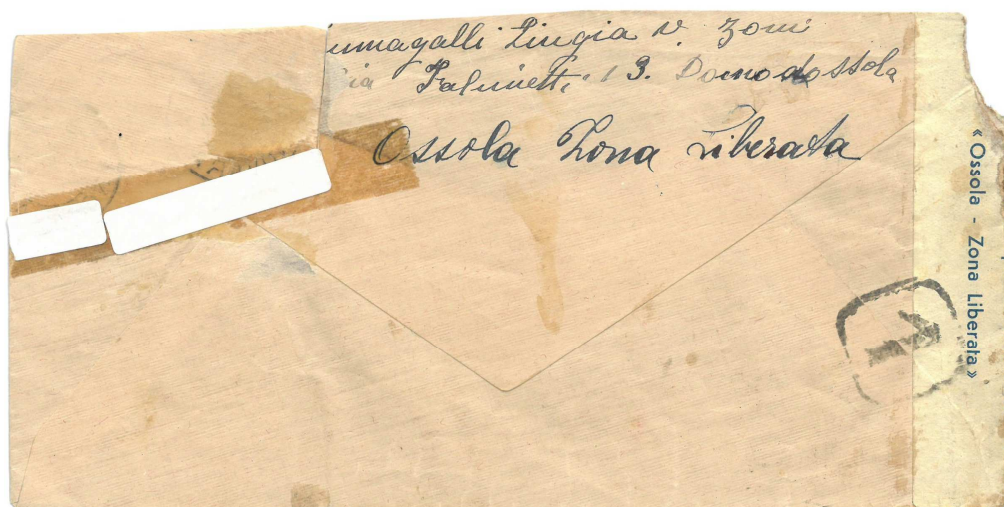 umagalli Luigia v. Zoni
ia Falcinetti 13. Domodossola
Ossola Zona Liberata
« Ossola - Zona Liberata »
1